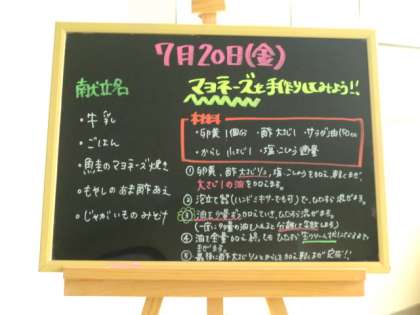 7月20日(金)
献立名
・牛乳
・ごはん
・魚圭のマヨネーズ焼き
・もやしのあま酢あえ
・じゃがいものみそ汁
マヨネーズを手作りしてみよう!!
材料
・卵黄1個分 ・酢大さじ1 ・サラダ油
・からし小さじ1 ・塩こしょう適量
①卵黄、酢大さじ1/2、塩こしょうを加え、軽くまぜ、
大さじ1の油を加える。
②泡立て器(ハンドミキサーでも可)で、ひたすら混ぜる。
③油を少量ずつ加えていき、ひたすら混ぜる。
(一度に多量の油を入れると分離して失敗します)
④油を全量加え終
まぜます。
⑤最後に酢大さじ1/2とからしを加え軽くまぜ完成!!